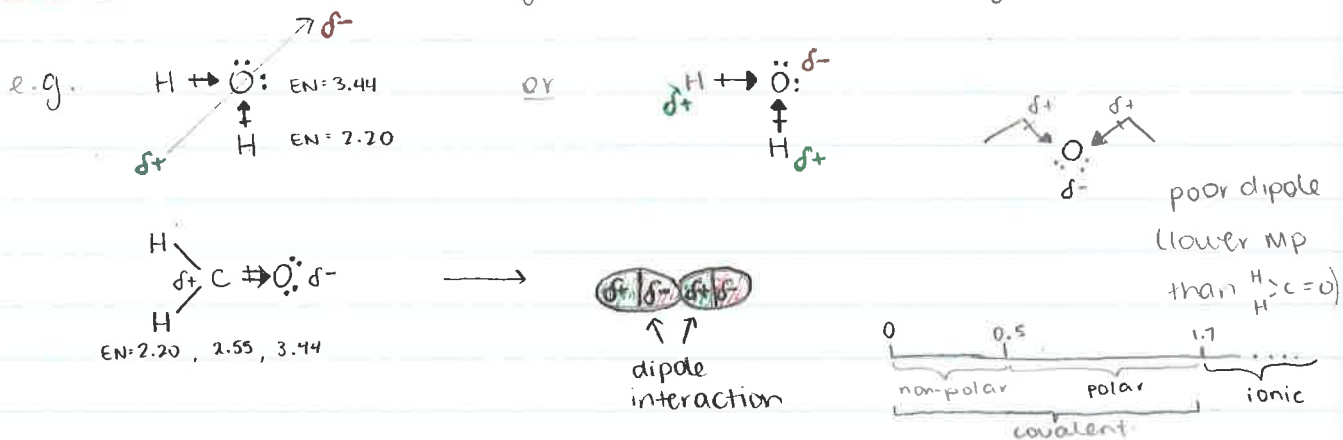 δ-
e.g. H O: EN=3.44
H EN=2.20
δ+
or
δ+ H O: δ-
H δ+
δ+ δ+
O
δ-
poor dipole
(lower MP
than H H >C=O)
H
δ+ C O δ-
H
EN=2.20, 2.55, 3.44
δ+ δ- δ+ δ-
dipole
interaction
0 0.5 1.7 ....
non-polar polar ionic
covalent